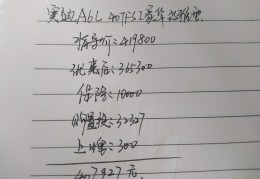 奥迪A6L 40TFSI豪华致雅型
指导价:419800
优惠后:365300
保险:10000
购置税:32327
上牌:300
407927元